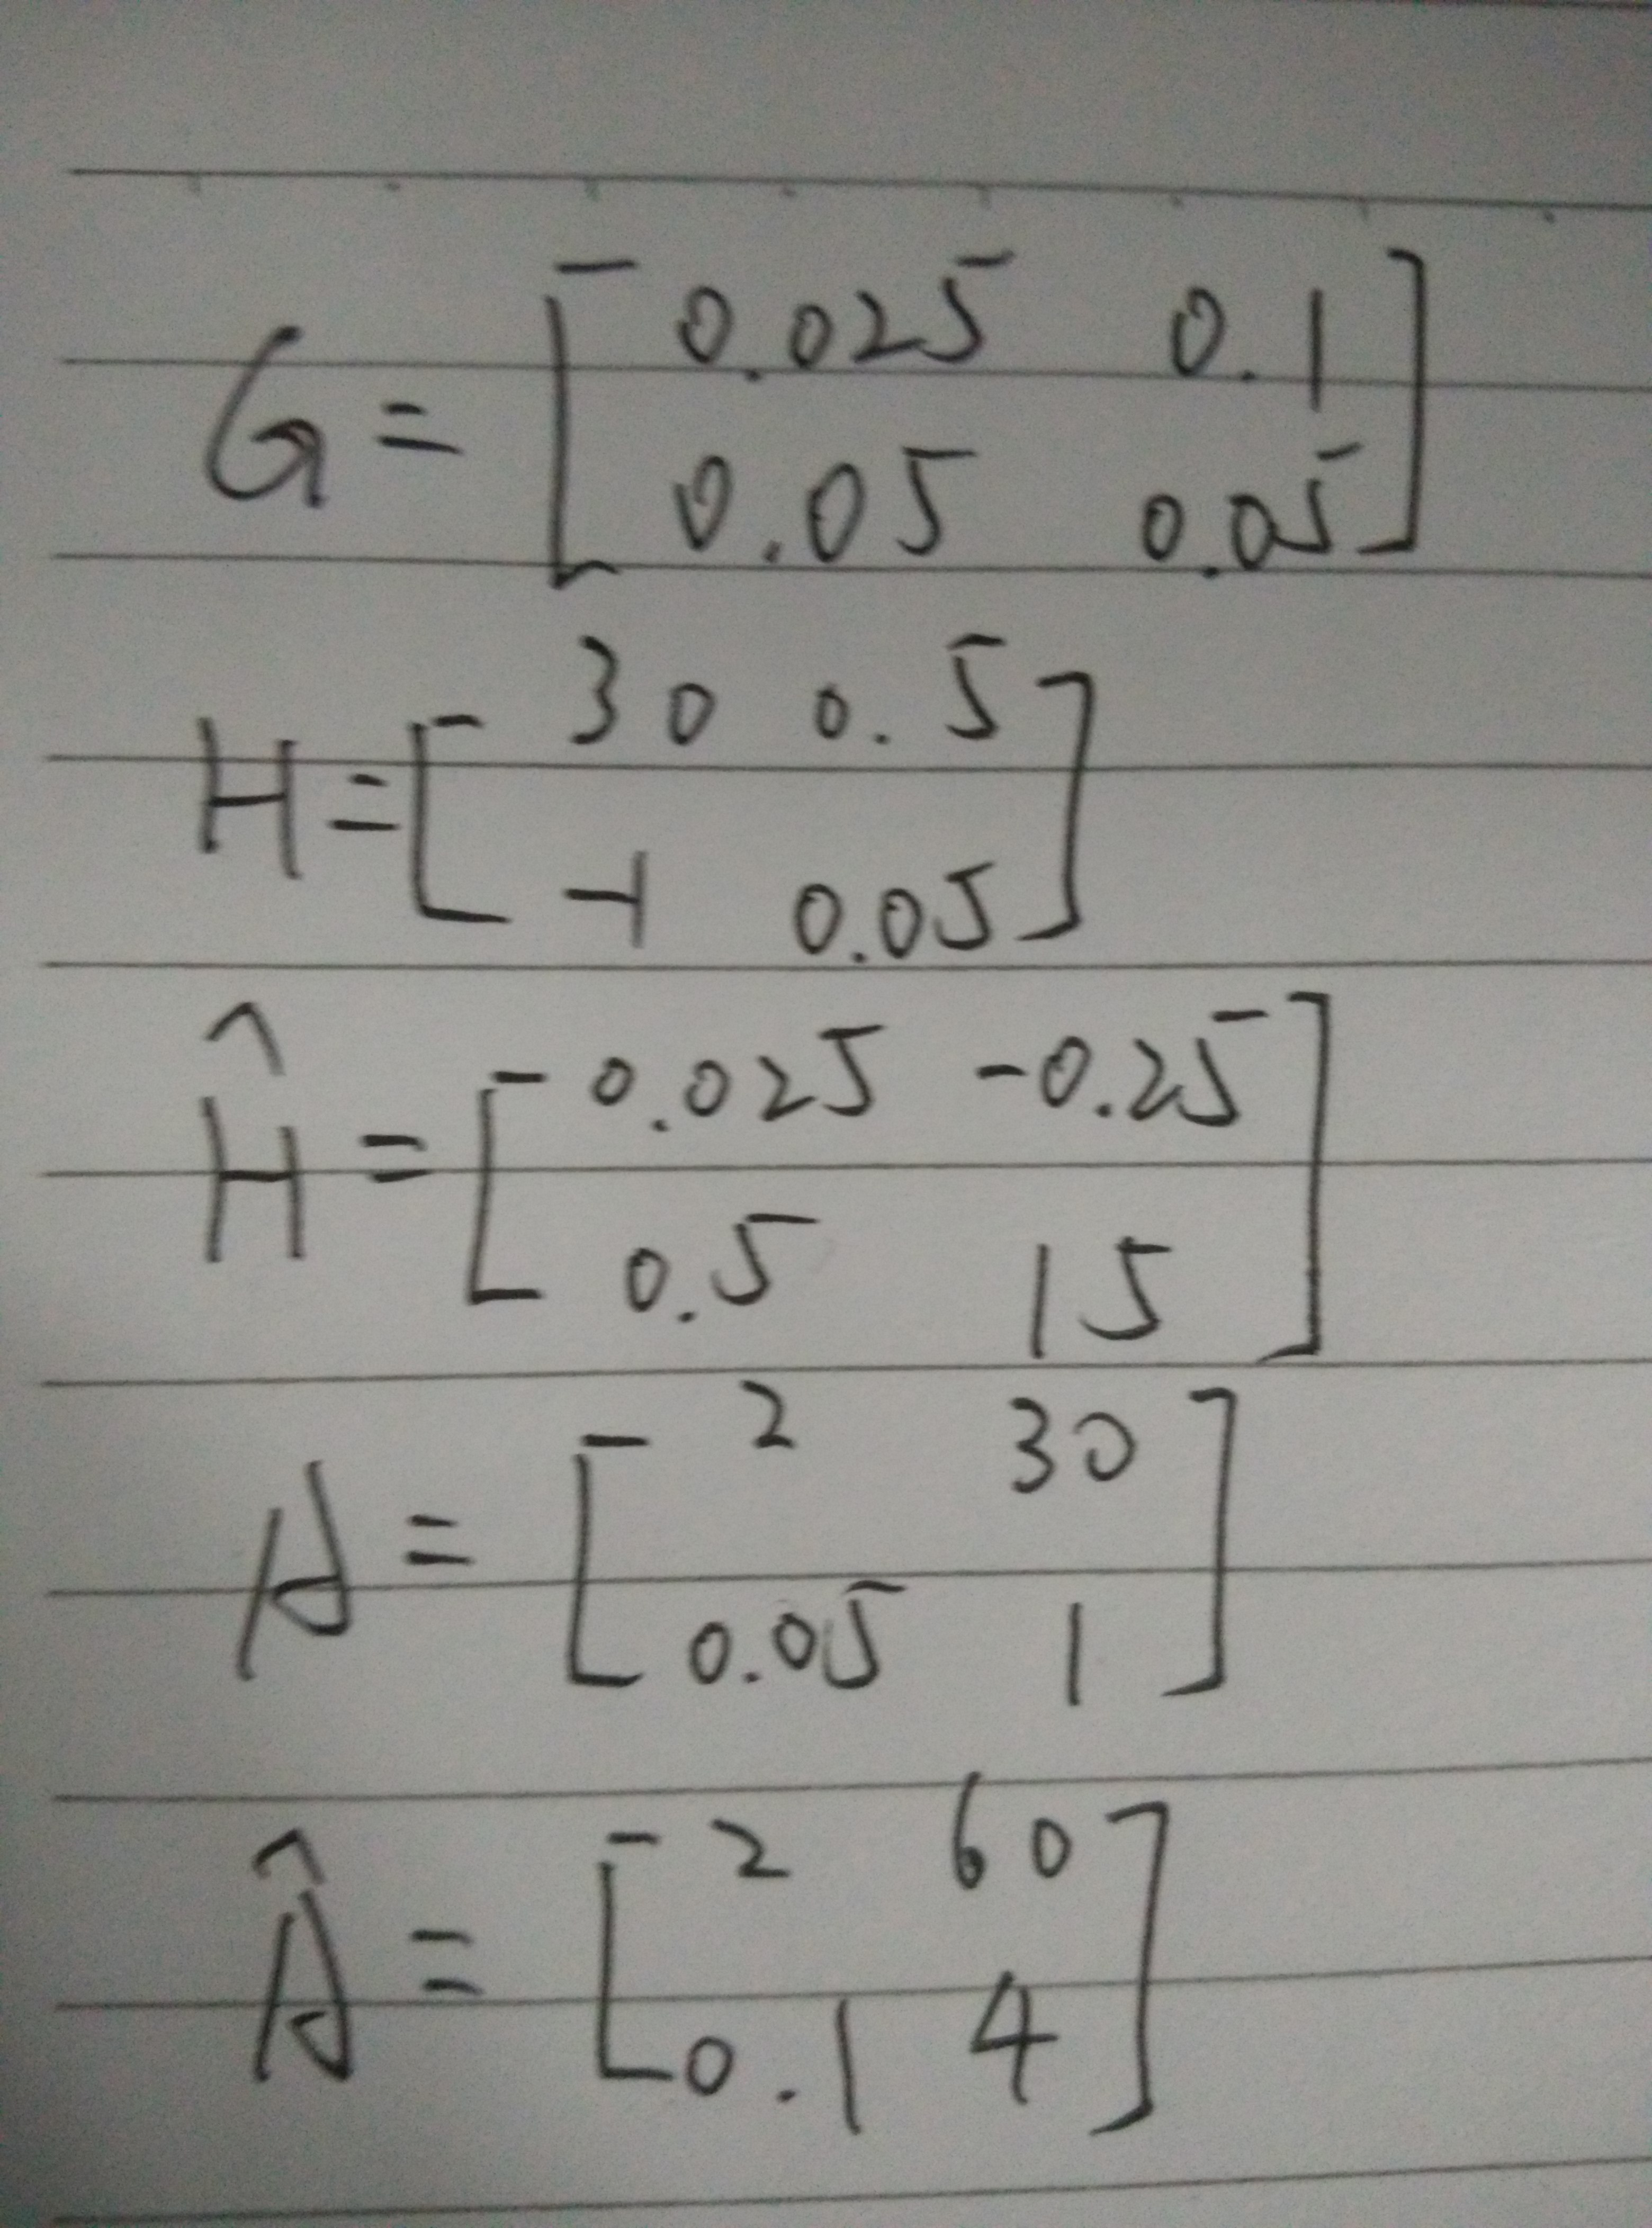 G = [ 0.025 0.1
0.05 0.05 ]
H = [ 30 0.5
-1 0.05 ]
Ĥ = [ 0.025 -0.25
0.5 15 ]
A = [ 2 30
0.05 1 ]
Â = [ 2 60
0.1 4 ]